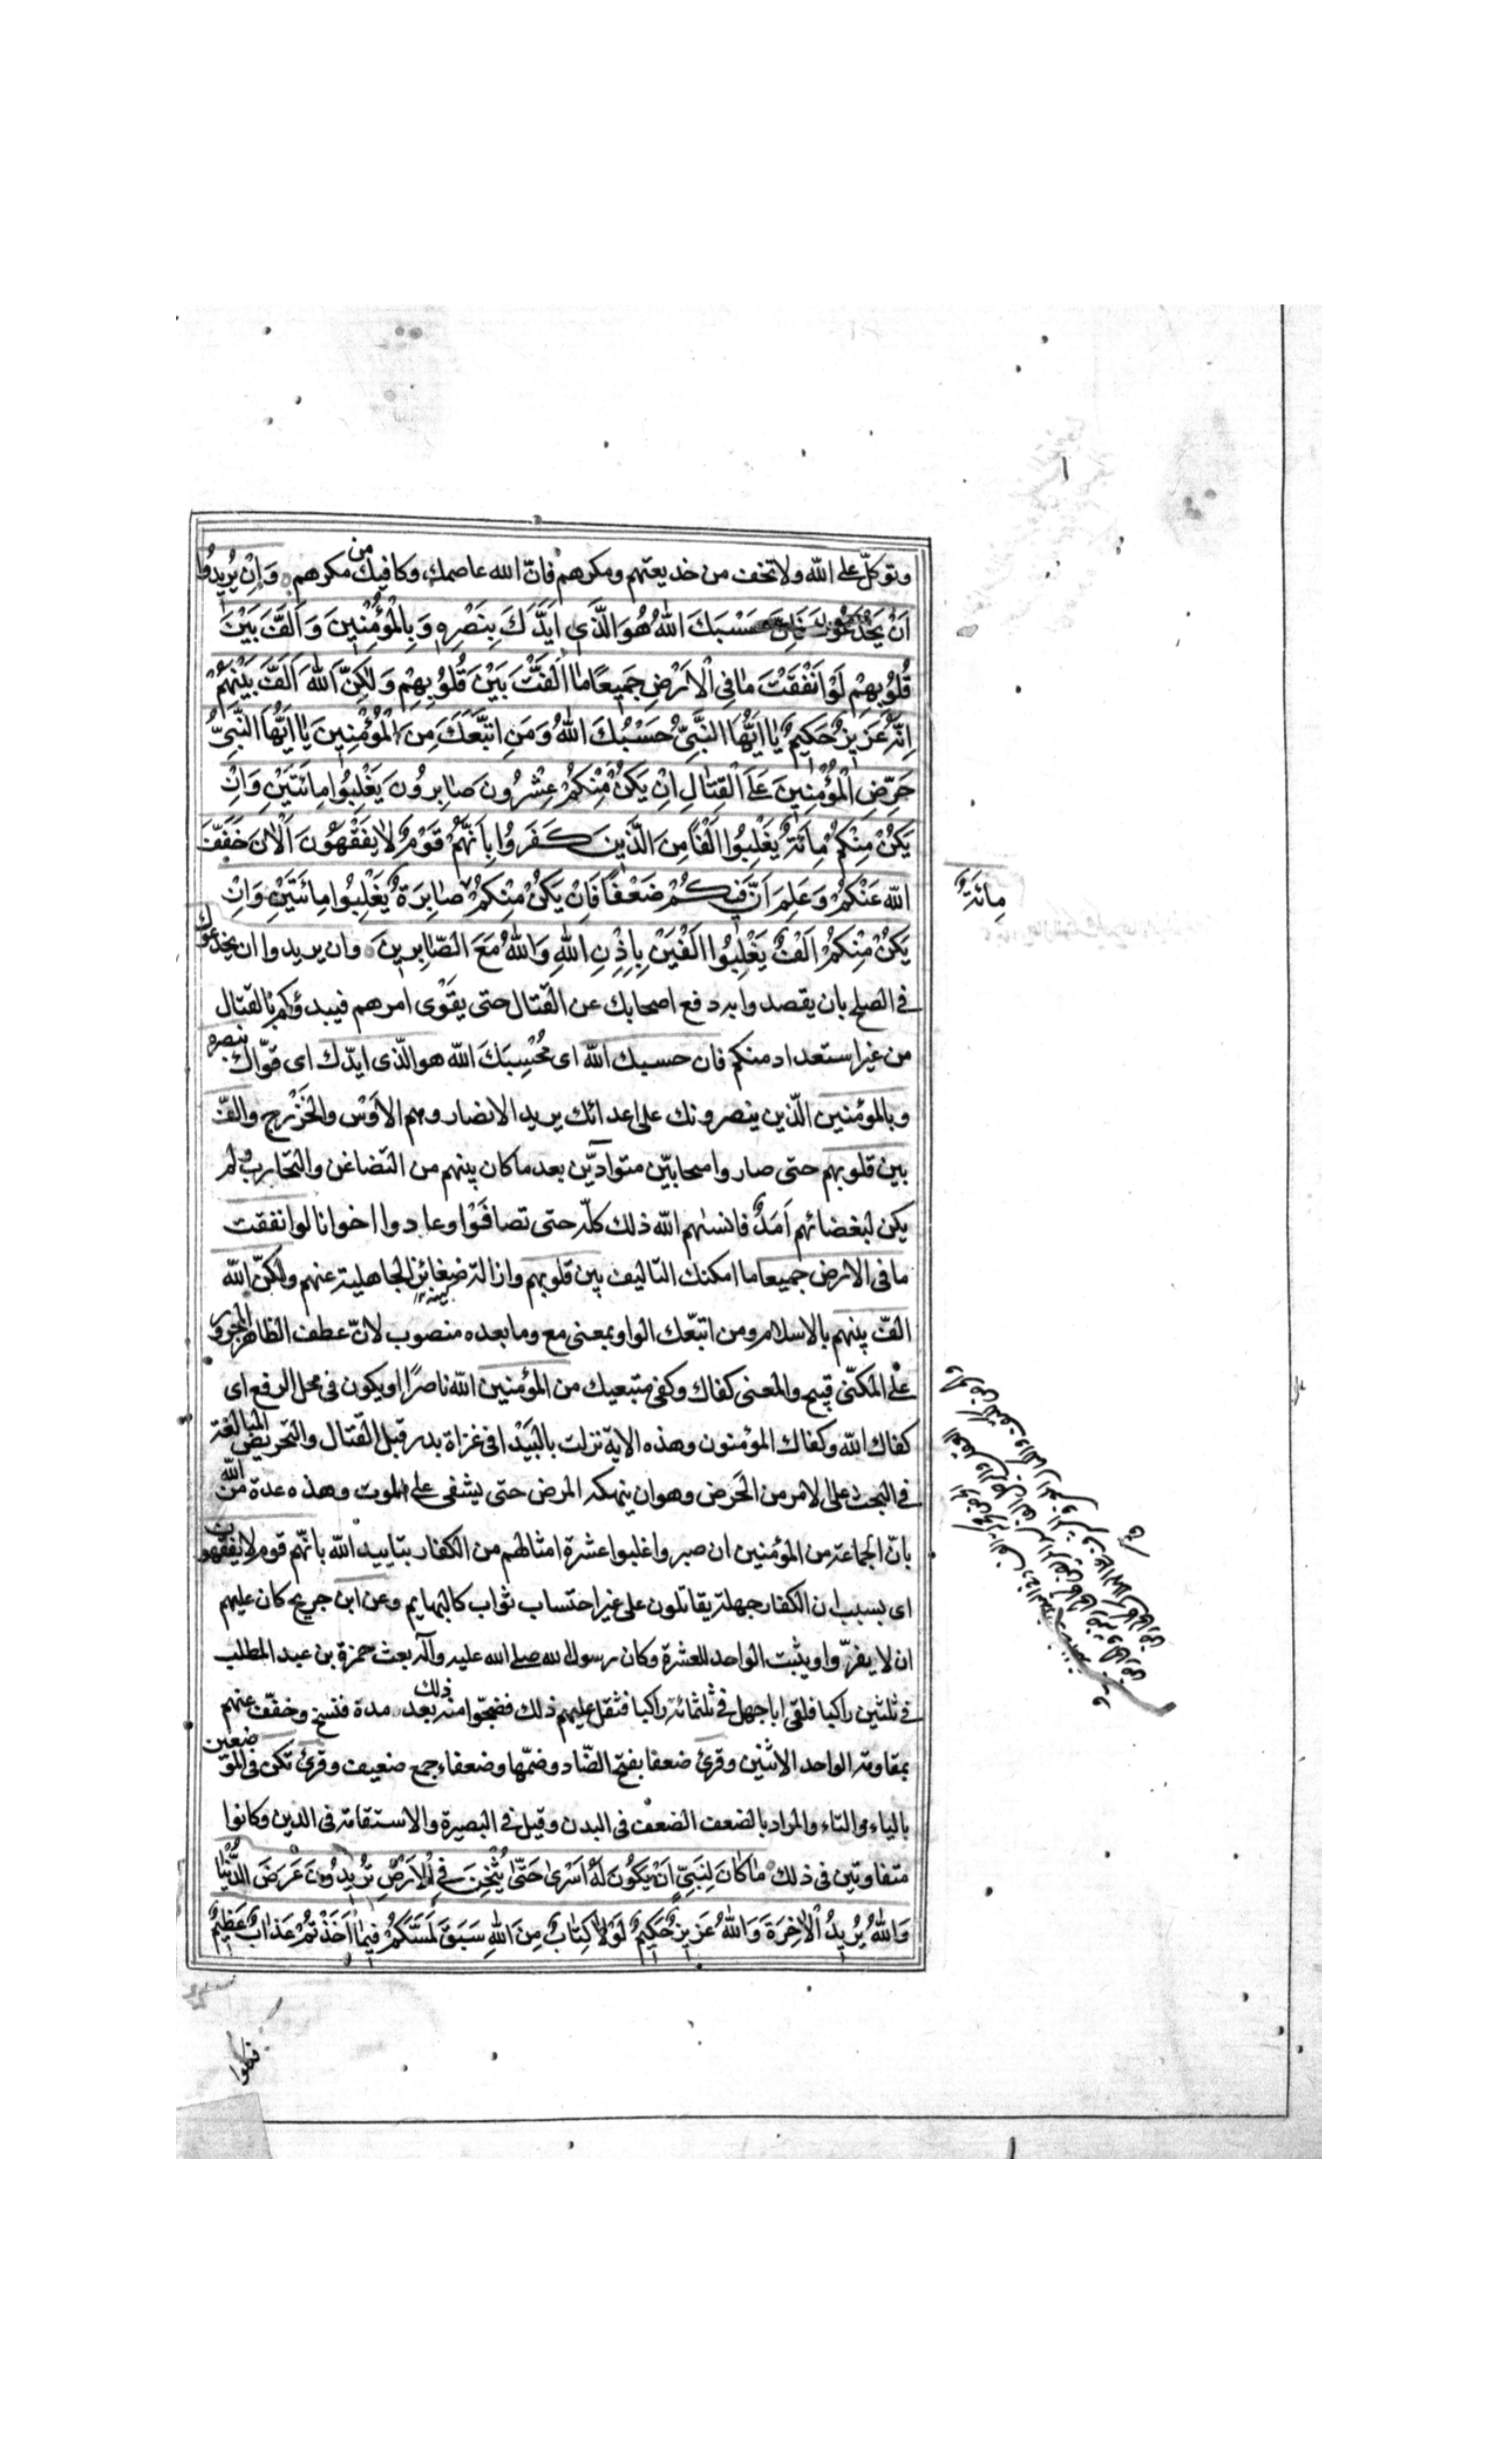 وتوكّل على الله ولا تخف من خديعتهم ومكرهم فانّ الله عاصمك وكافيك من مكرهم وَاِنْ يُرِيدُوا
اَنْ يَخْدَعُوكَ فَاِنَّ حَسْبَكَ اللهُ هُوَ الَّذِي اَيَّدَكَ بِنَصْرِهِ وَبِالْمُؤْمِنِينَ وَاَلَّفَ بَيْنَ
قُلُوبِهِمْ لَوْ اَنْفَقْتَ مَا فِي الْاَرْضِ جَمِيعًا مَا اَلَّفْتَ بَيْنَ قُلُوبِهِمْ وَلٰكِنَّ اللهَ اَلَّفَ بَيْنَهُمْ
اِنَّهُ عَزِيزٌ حَكِيمٌ يَا اَيُّهَا النَّبِيُّ حَسْبُكَ اللهُ وَمَنِ اتَّبَعَكَ مِنَ الْمُؤْمِنِينَ يَا اَيُّهَا النَّبِيُّ
حَرِّضِ الْمُؤْمِنِينَ عَلَى الْقِتَالِ اِنْ يَكُنْ مِنْكُمْ عِشْرُونَ صَابِرُونَ يَغْلِبُوا مِائَتَيْنِ وَاِنْ
يَكُنْ مِنْكُمْ مِائَةٌ يَغْلِبُوا اَلْفًا مِنَ الَّذِينَ كَفَرُوا بِاَنَّهُمْ قَوْمٌ لَا يَفْقَهُونَ اَلْاٰنَ خَفَّفَ
اللهُ عَنْكُمْ وَعَلِمَ اَنَّ فِيكُمْ ضَعْفًا فَاِنْ يَكُنْ مِنْكُمْ صَابِرَةٌ يَغْلِبُوا مِائَتَيْنِ وَاِنْ
مِائَةٌ
يَكُنْ مِنْكُمْ اَلْفٌ يَغْلِبُوا اَلْفَيْنِ بِاِذْنِ اللهِ وَاللهُ مَعَ الصَّابِرِينَ وان يريدوا ان يخدعوك
في الصلح بان يقصدوا به دفع اصحابك عن القتال حتى يقوى امرهم فيبدؤكم بالقتال
من غير استعداد منكم فان حسبك الله اى مُحْسِبَكَ الله هو الّذى ايّدك اى قوّاك بنصره
وبالمؤمنين الّذين ينصرونك على اعدائك يريد الانصار وهم الاَوْس والخَزْرج والّف
بين قلوبهم حتى صاروا متحابّين متوادّين بعد ما كان بينهم من التضاغن والتحارب ولم
يكن لبغضائهم اَمَدٌ فانساهم الله ذلك كلّه حتى تصافَوْا وعادوا اخوانا لو انفقت
ما فى الارض جميعا ما امكنك التاليف بين قلوبهم وازالة ضغائن الجاهلية عنهم ولكنّ الله
الّف بينهم بالاسلام ومن اتبّعك الواو بمعنى مع وما بعده منصوب لانّ عطف الظاهر المجرور
على المكنّى قبيح والمعنى كفاك وكفى متبعيك من المؤمنين الله ناصرًا او يكون فى محل الرفع اى
كفاك الله وكفاك المؤمنون وهذه الاية نزلت بالبَيْدا فى غزاة بدر قبل القتال والتحريض المبالغة
في البحث على الامر من الحَرض وهو ان ينهكه المرض حتى يشفى على الموت وهذه عدة من الله
بانّ الجماعة من المؤمنين ان صبروا غلبوا عشرة امثالهم من الكفار بتاييد الله بانّهم قوم لا يفقهون
اى بسبب ان الكفار جهلة يقاتلون على غير احتساب ثواب كالبهايم وعن ابن جريج كان عليهم
ان لا يفرّوا ويثبت الواحد للعشرة وكان رسول الله صلى الله عليه وآله بعث حمزة بن عبد المطلب
في ثلثين راكبا فلقى ابا جهل فى ثلثمائة راكبا فثقل عليهم ذلك فضجّوا منه بعد ذلك مدة فنسخ وخفّف عنهم
بمقاومة الواحد الاثنين وقرئ ضعفا بفتح الضّاد وضمّها وضعفاء جمع ضعيف وقرئ تكن فى الموضعين
بالياء والتاء والمراد بالضعف الضعف فى البدن وقيل فى البصيرة والاستقامة فى الدين وكانوا
متفاوتين فى ذلك مَا كَانَ لِنَبِيٍّ اَنْ يَكُونَ لَهُ اَسْرٰى حَتّٰى يُثْخِنَ فِي الْاَرْضِ تُرِيدُونَ عَرَضَ الدُّنْيَا
وَاللهُ يُرِيدُ الْاٰخِرَةَ وَاللهُ عَزِيزٌ حَكِيمٌ لَوْلَا كِتَابٌ مِنَ اللهِ سَبَقَ لَمَسَّكُمْ فِيمَا اَخَذْتُمْ عَذَابٌ عَظِيمٌ
فكلوا